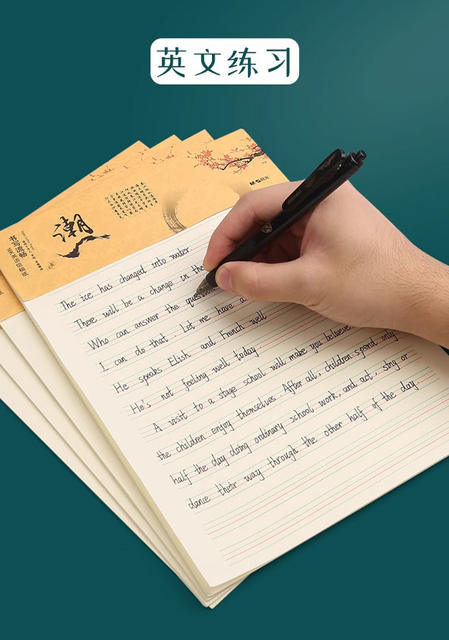 英文练习
潮
M&G 晨光
The ice has changed into water
There will be a change in the
Who can answer the question
I can do that. Let me have a
He speaks Elish and French well
He's not feeling well today.
A visit to a stage school will make you believe
the children enjoy themselves. After all, children spend only
half the day doing ordinary school work, and act, sing or
dance their way through the other half of the day